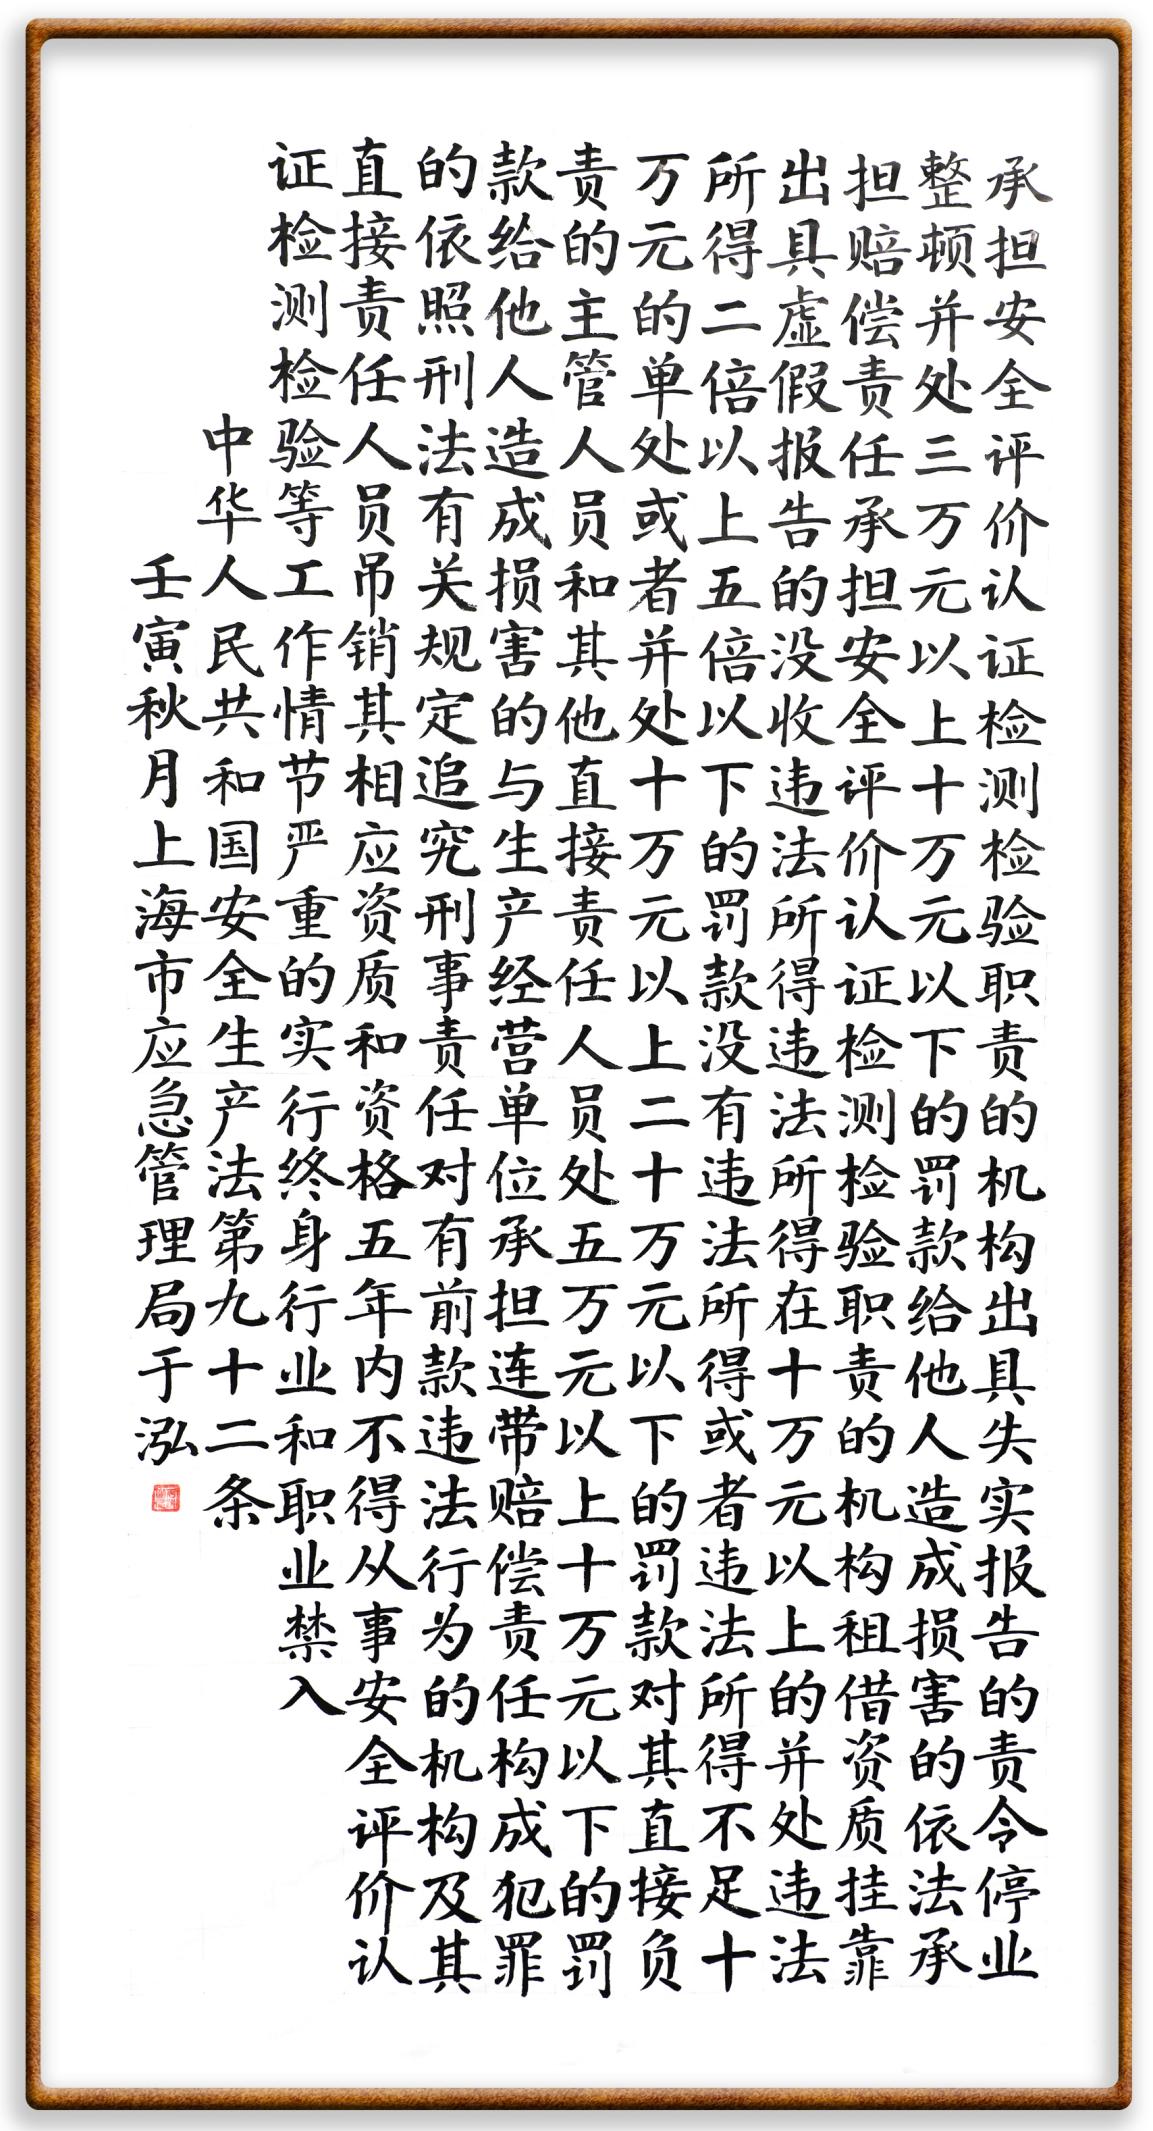 承担安全评价认证检测检验职责的机构出具失实报告的责令停业
整顿并处三万元以上十万元以下的罚款给他人造成损害的依法承
担赔偿责任承担安全评价认证检测检验职责的机构租借资质挂靠
出具虚假报告的没收违法所得违法所得在十万元以上的并处违法
所得二倍以上五倍以下的罚款没有违法所得或者违法所得不足十
万元的单处或者并处十万元以上二十万元以下的罚款对其直接负
责的主管人员和其他直接责任人员处五万元以上十万元以下的罚
款给他人造成损害的与生产经营单位承担连带赔偿责任构成犯罪
的依照刑法有关规定追究刑事责任对有前款违法行为的机构及其
直接责任人员吊销其相应资质和资格五年内不得从事安全评价认
证检测检验等工作情节严重的实行终身行业和职业禁入
中华人民共和国安全生产法第九十二条
壬寅秋月上海市应急管理局于泓